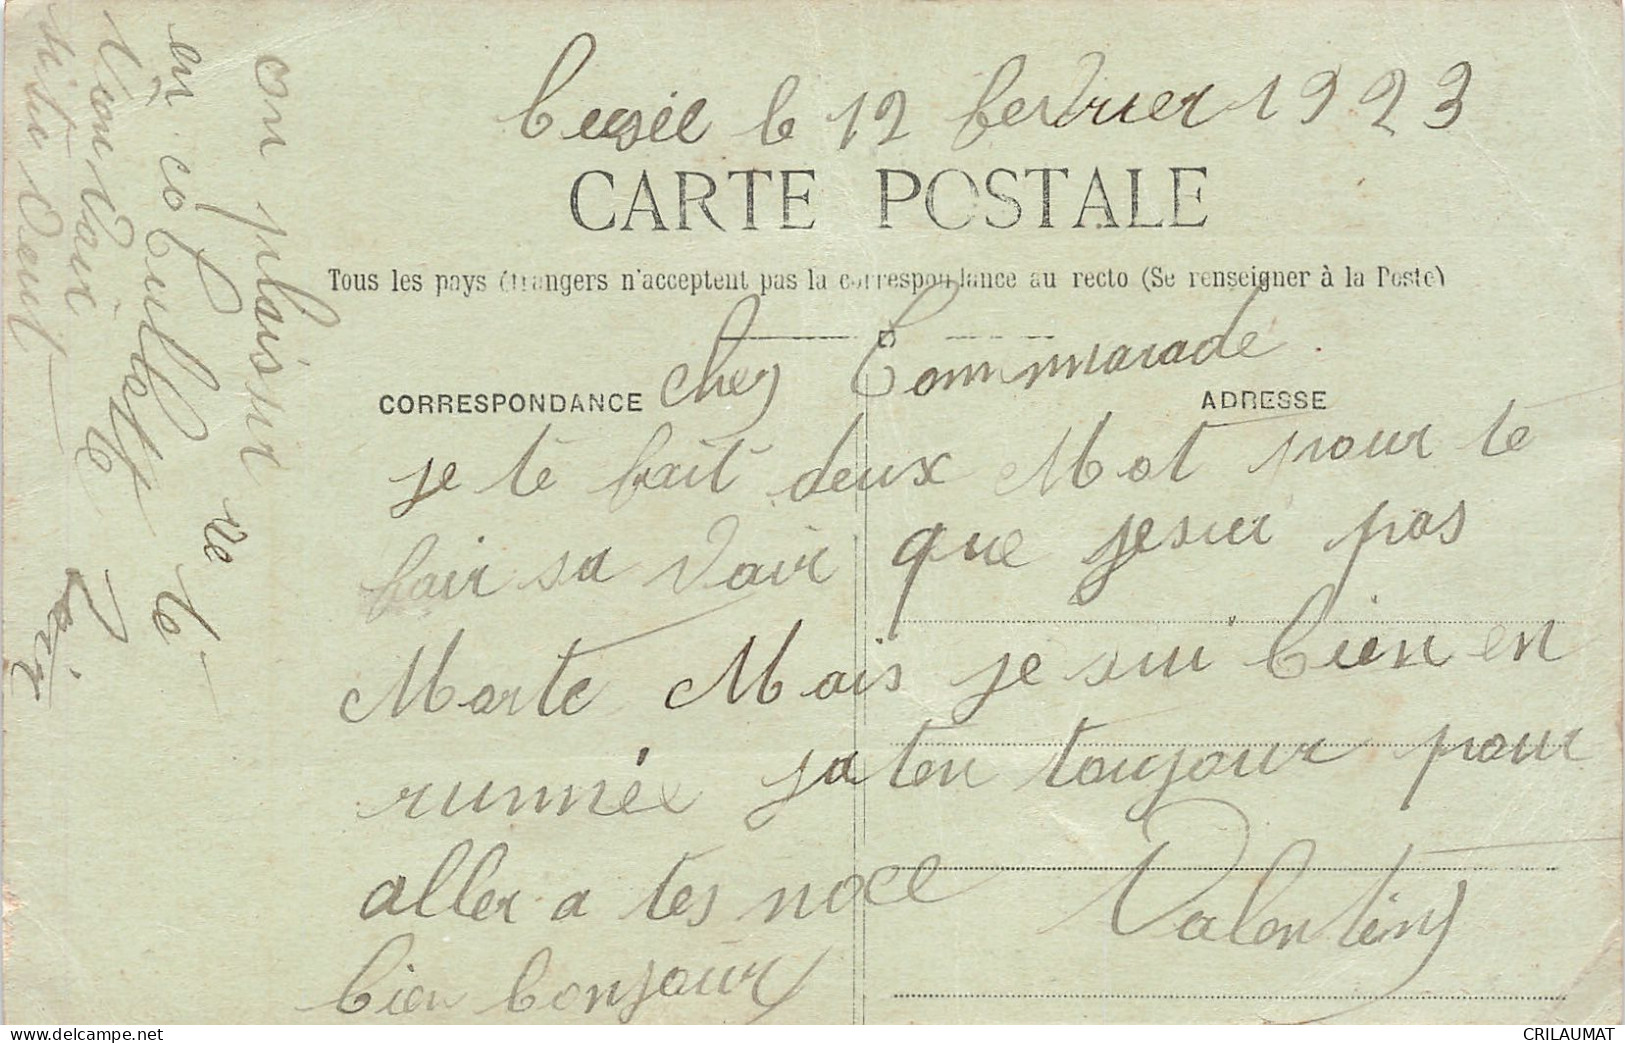 le 12 fevrier 1923
CARTE POSTALE
Tous les pays étrangers n'acceptent pas la correspondance au recto (Se renseigner à la Poste)
cher Commmarade
CORRESPONDANCE
ADRESSE
je te fait deux Mot pour te
fair sa voir que je sui pas
Morte Mais je sui bien en
runnée ja ten toujour pour
aller a tes noce
Valentin
bien bonjour
on plaisir de te
en culotte
CRILAUMAT